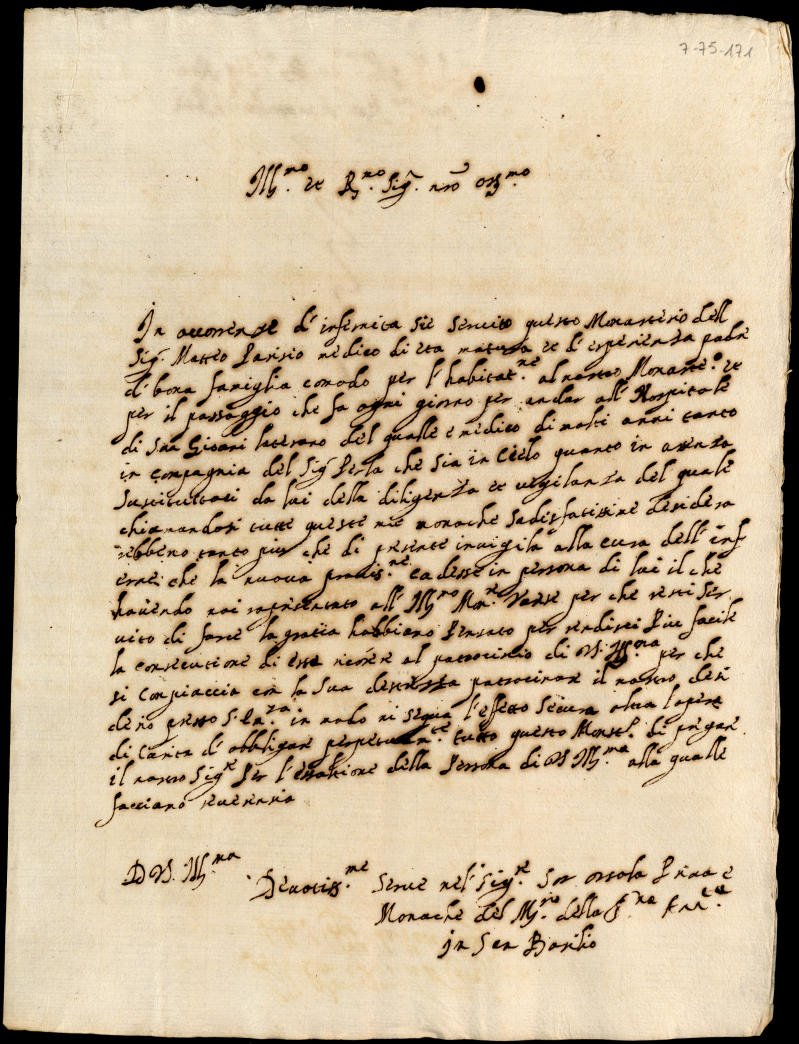 7-75-171
Ill.mo et R.mo Sig.r nro oss.mo
In occorrenze d'infermita sie servito questo Monasterio dell
Sig.r Matteo Parisio medico di eta matura et d'esperienza padre
di bona famiglia comodo per l'habitat.ne al nostro Monast.o et
per il passaggio che fa ogni giorno per andar all'Hospitale
di San Giovani laterano del qualle e medico di molti anni tanto
in compagnia del Sig.r Perla che sia in Cielo quanto in assenza
sustituttosi da lui della diligenza et vigilanza del quale
chiamandosi tutte queste mie monache sadisfatissime desidera
rebbeno tanto piu che di presente invigila alla cura dell'inf
erme che la nuova provis.ne cadesse in persona di lui il che
havendo noi rapresentato all Ill.mo Mon.re per che resti ser
vito di farci la gratia habbiamo pensato per renderci piu facile
la consecutione di essa ricorere al patrocinio di VS Ill.ma per che
si compiaccia con la sua destrezza patrocinare il nostro desi
derio presso S. Em.za in modo ni segua l'efetto securo oltra l'opera
di Carita d'obbligare perpetuam.te tutto questo Monast.o di pregare
il nostro Sig.re per l'esaltione della persona di VS Ill.ma alla qualle
facciamo reverenza
D VS. Ill.ma
Devotiss.me serve nel Sig.re Sor Orsola Priora e
Monache del M.rio della S.ma Ann.ta
in San Basilio